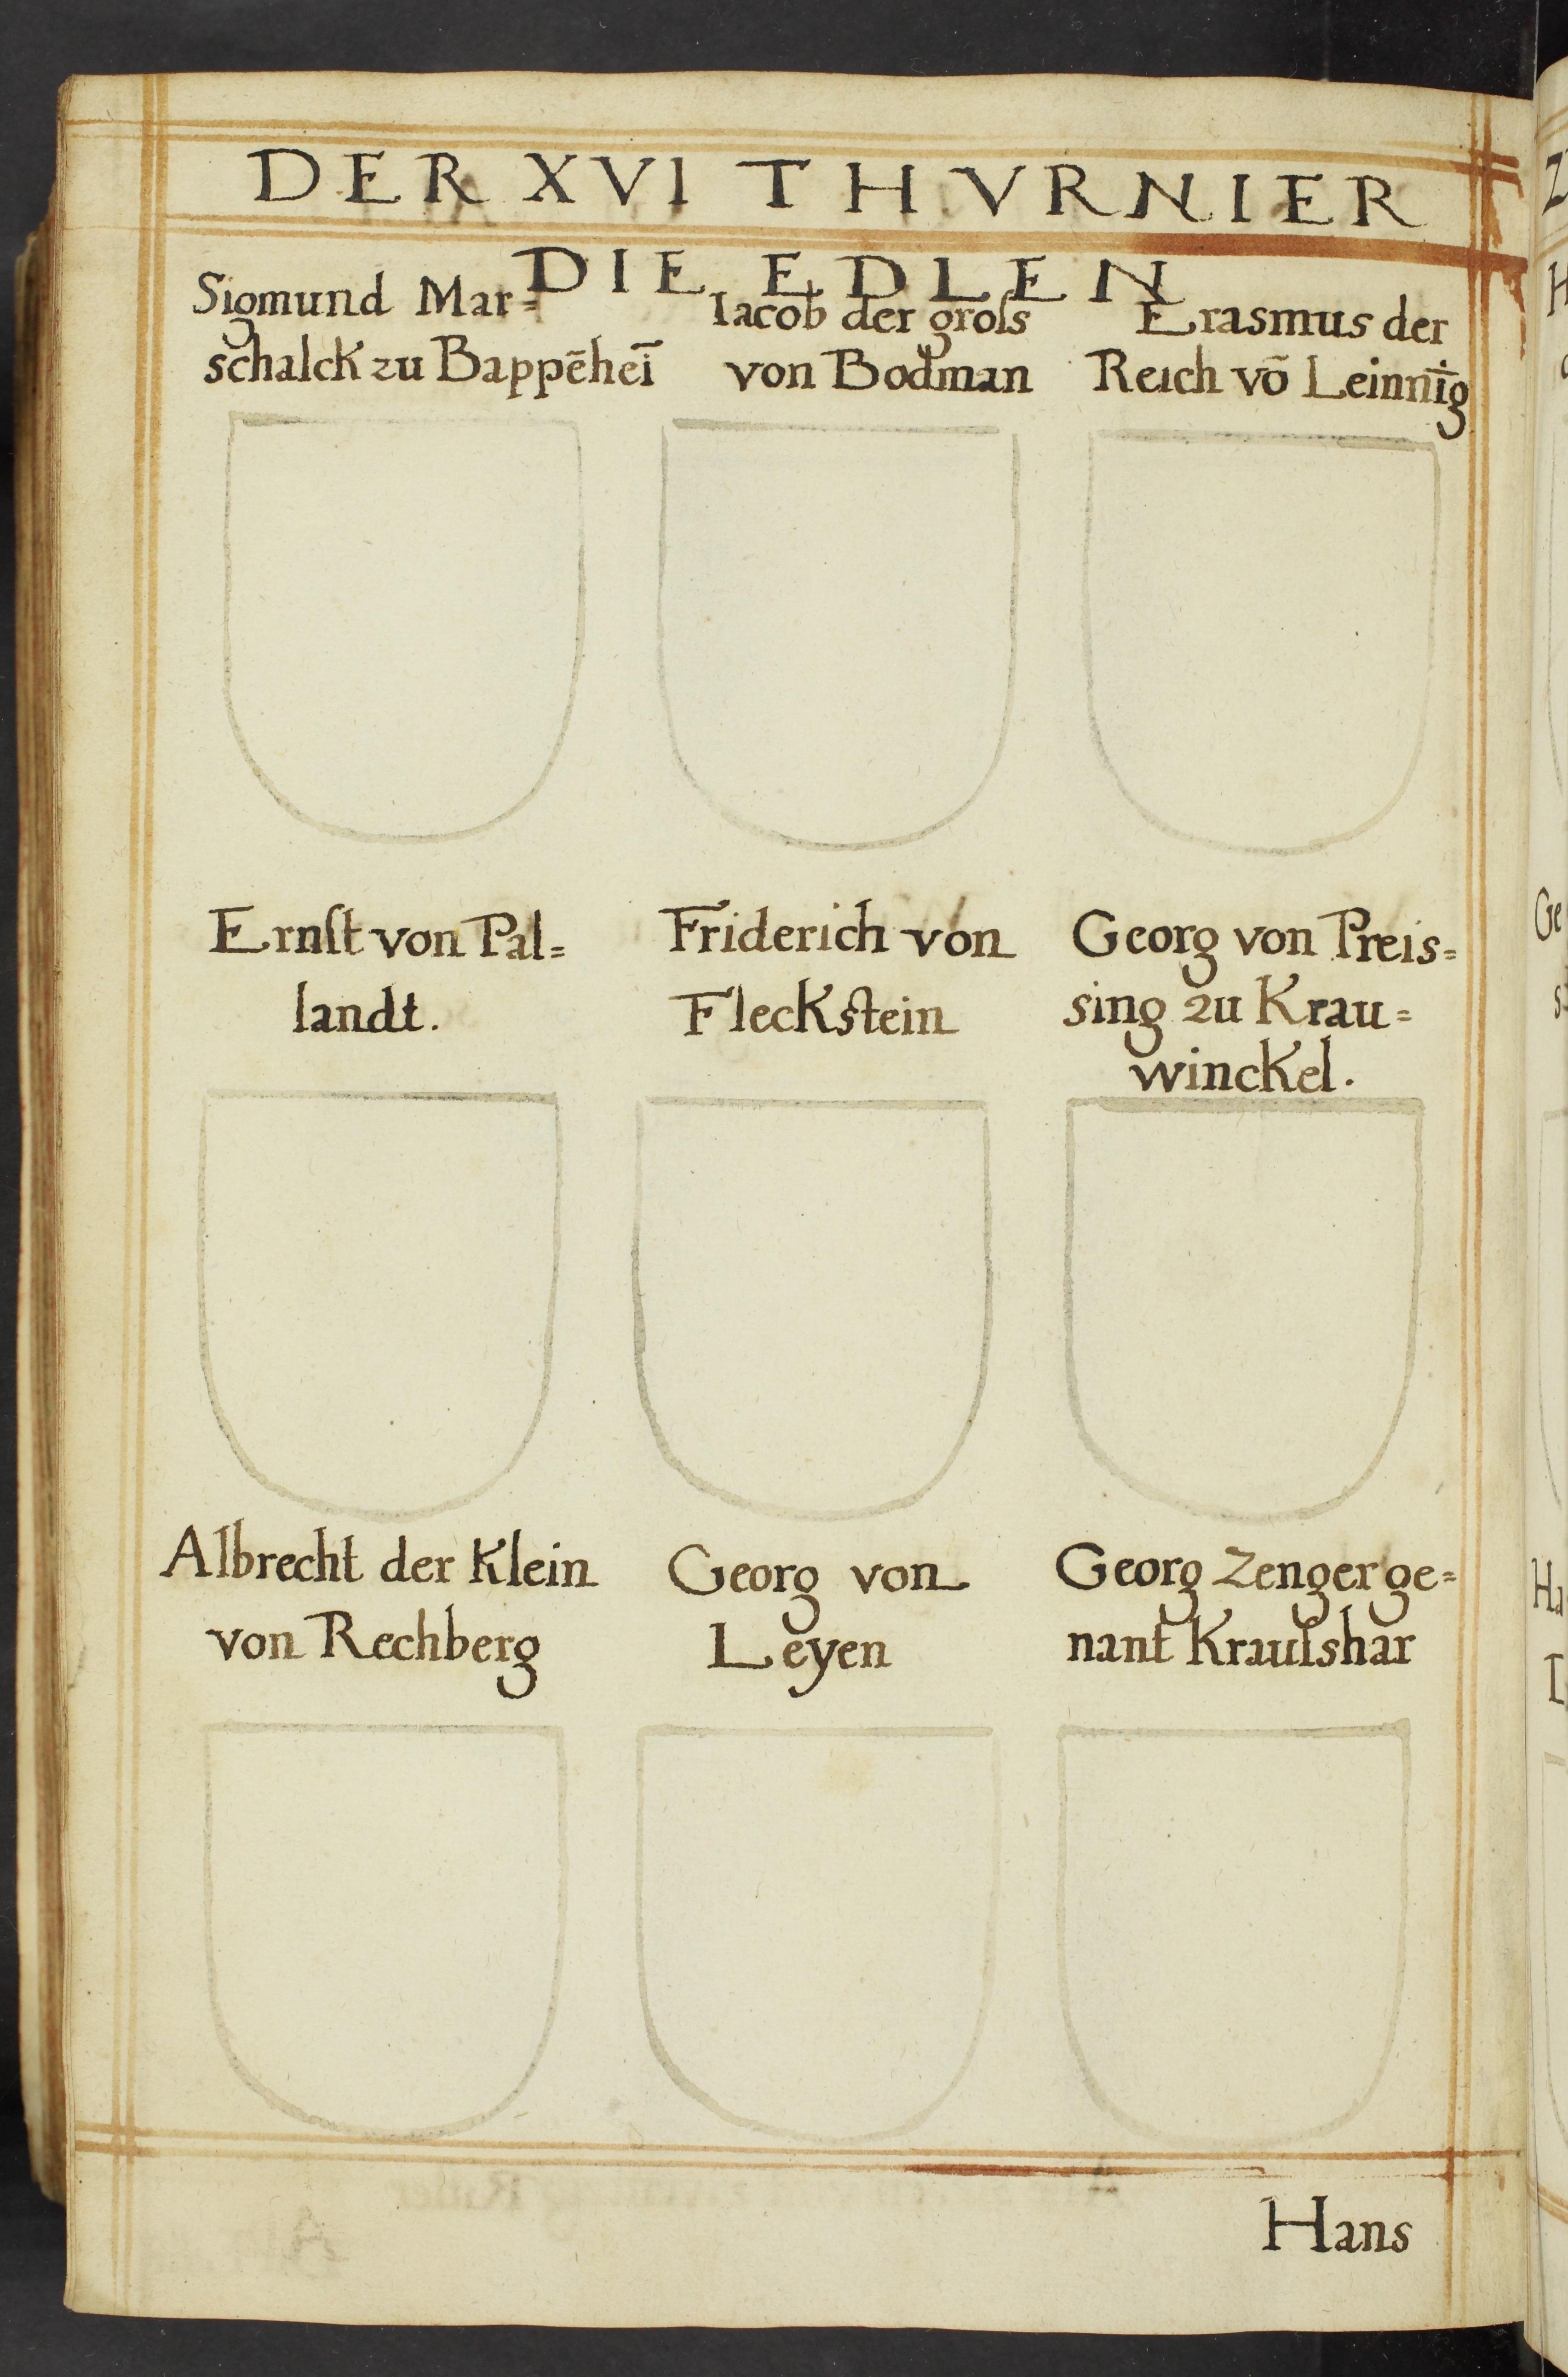 DER XVI THVRNIER
DIE EDLEN
Sigmund Mar=
schalck zu Bappēhei̅
Iacob der groſs
von Bodman
Erasmus der
Reich vō Leinni̅g
Ernſt von Pal=
landt.
Friderich von
Fleckſtein
Georg von Preis=
sing zu Krau=
winckel.
Albrecht der Klein
von Rechberg
Georg von
Leyen
Georg Zenger ge=
nant Krauſshar
Hans